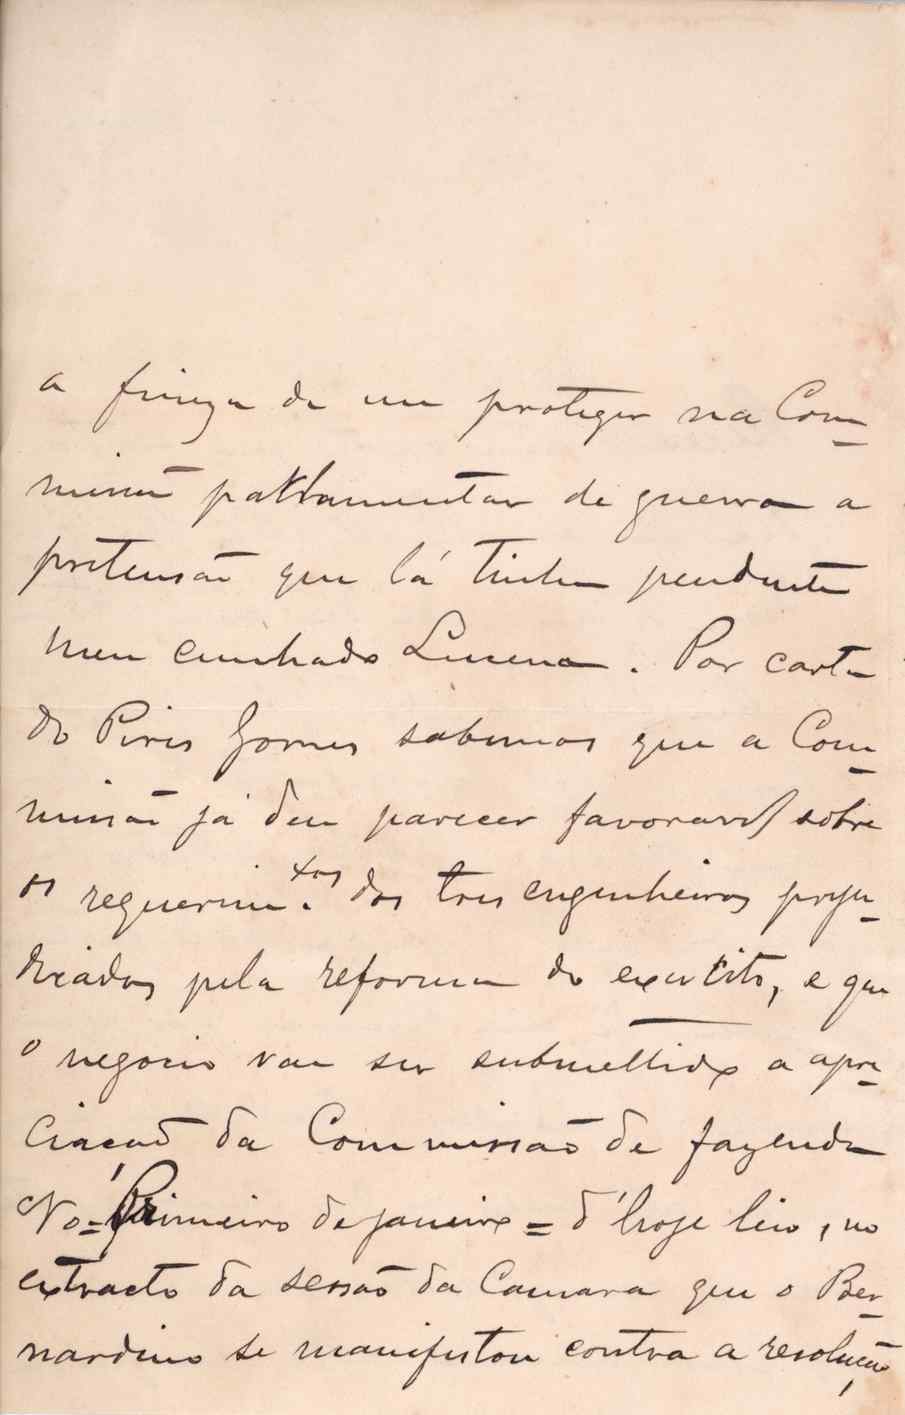 a fineza de me proteger na Com-
missão parlamentar de guerra a
pretensão que lá tinha pendente
meu cunhado Lucena. Por carta
do Pires Gomes sabemos que a Com-
missão já deu parecer favoravel sobre
os requerim.tos dos tres engenheiros preju-
dicados pela reforma do exercito, e que
o negocio vae ser submettido a apre-
ciação da Commissão de fazenda
No = Primeiro de janeiro = d'hoje leio, no
extracto da sessão da Camara que o Ber-
nardino se manifestou contra a resolução